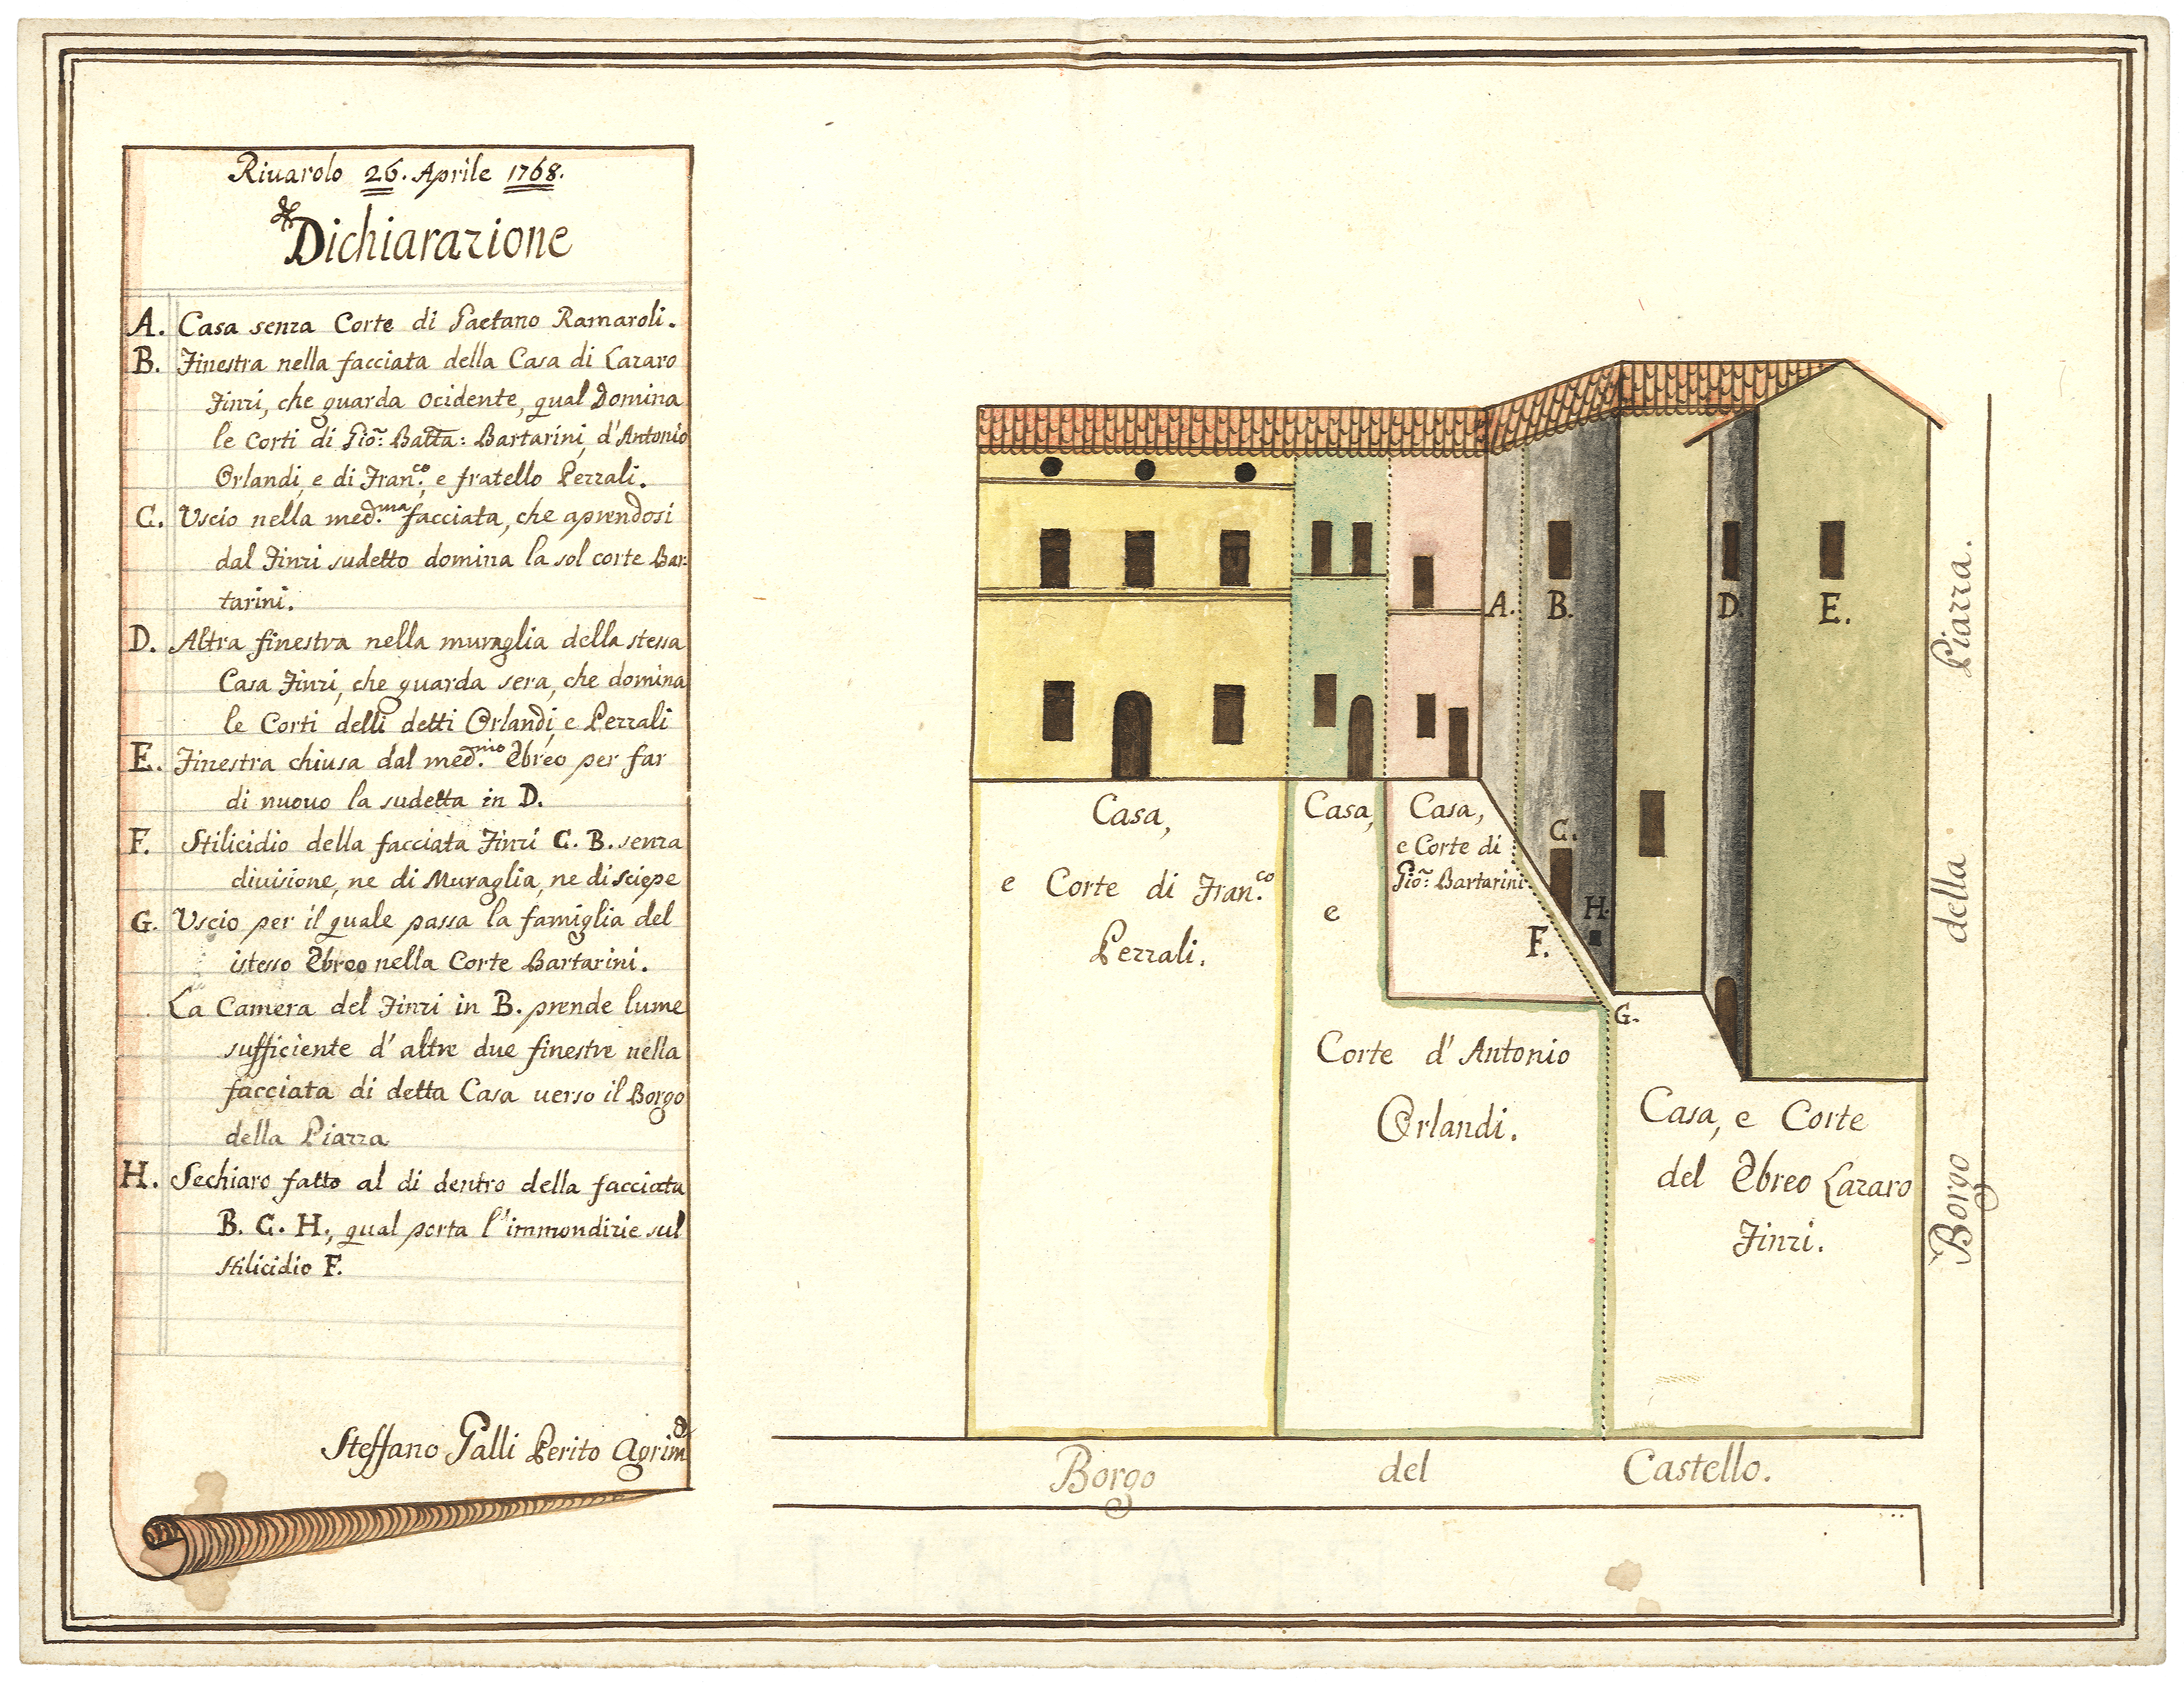 Riuarolo 26. Aprile 1768.
Dichiarazione
A. Casa senza Corte di Gaetano Ramaroli.
B. Finestra nella facciata della Casa di Lazaro
Finzi, che guarda ocidente, qual Domina
le Corti di Gio: Batta: Bartarini, d'Antonio
Orlandi, e di Fran.co, e fratello Pezzali.
C. Uscio nella med.ma facciata, che aprendosi
dal Finzi sudetto domina la sol corte Bar-
tarini.
D. Altra finestra nella muraglia della stessa
Casa Finzi, che guarda sera, che domina
le Corti delli detti Orlandi, e Pezzali
E. Finestra chiusa dal med.mo Ebreo per far
di nuouo la sudetta in D.
F. Stilicidio della facciata Finzi C. B. senza
diuisione, ne di Muraglia, ne di sciepe
G. Uscio per il quale passa la famiglia del
istesso Ebreo nella Corte Bartarini.
La Camera del Finzi in B. prende lume
sufficiente d'altre due finestre nella
facciata di detta Casa uerso il Borgo
della Piazza
H. Sechiaro fatto al di dentro della facciata
B. C. H., qual porta l'immondizie sul
stilicidio F.
Steffano Galli Perito Agrim
A.
B.
D.
E.
C.
H.
F.
G.
Casa,
e Corte di Fran.co
Pezzali.
Casa,
e
Corte d'Antonio
Orlandi.
Casa,
e Corte di
Gio: Bartarini
Casa, e Corte
del Ebreo Lazaro
Finzi.
Borgo della Piazza.
Borgo del Castello.